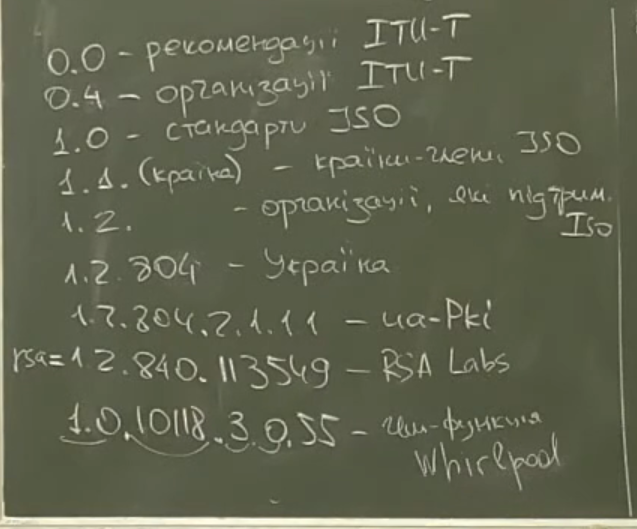 0.0 - рекомендації ITU-T
0.4 - організації ITU-T
1.0 - стандарти ISO
1.1. (країна) - країни-члени ISO
1.2. - організації, які підтрим. ISO
1.2.804 - Україна
1.2.804.2.1.1.1 - ua-Pki
rsa = 1.2.840.113549 - RSA Labs
1.0.10118.3.0.55 - геш-функція
Whirlpool